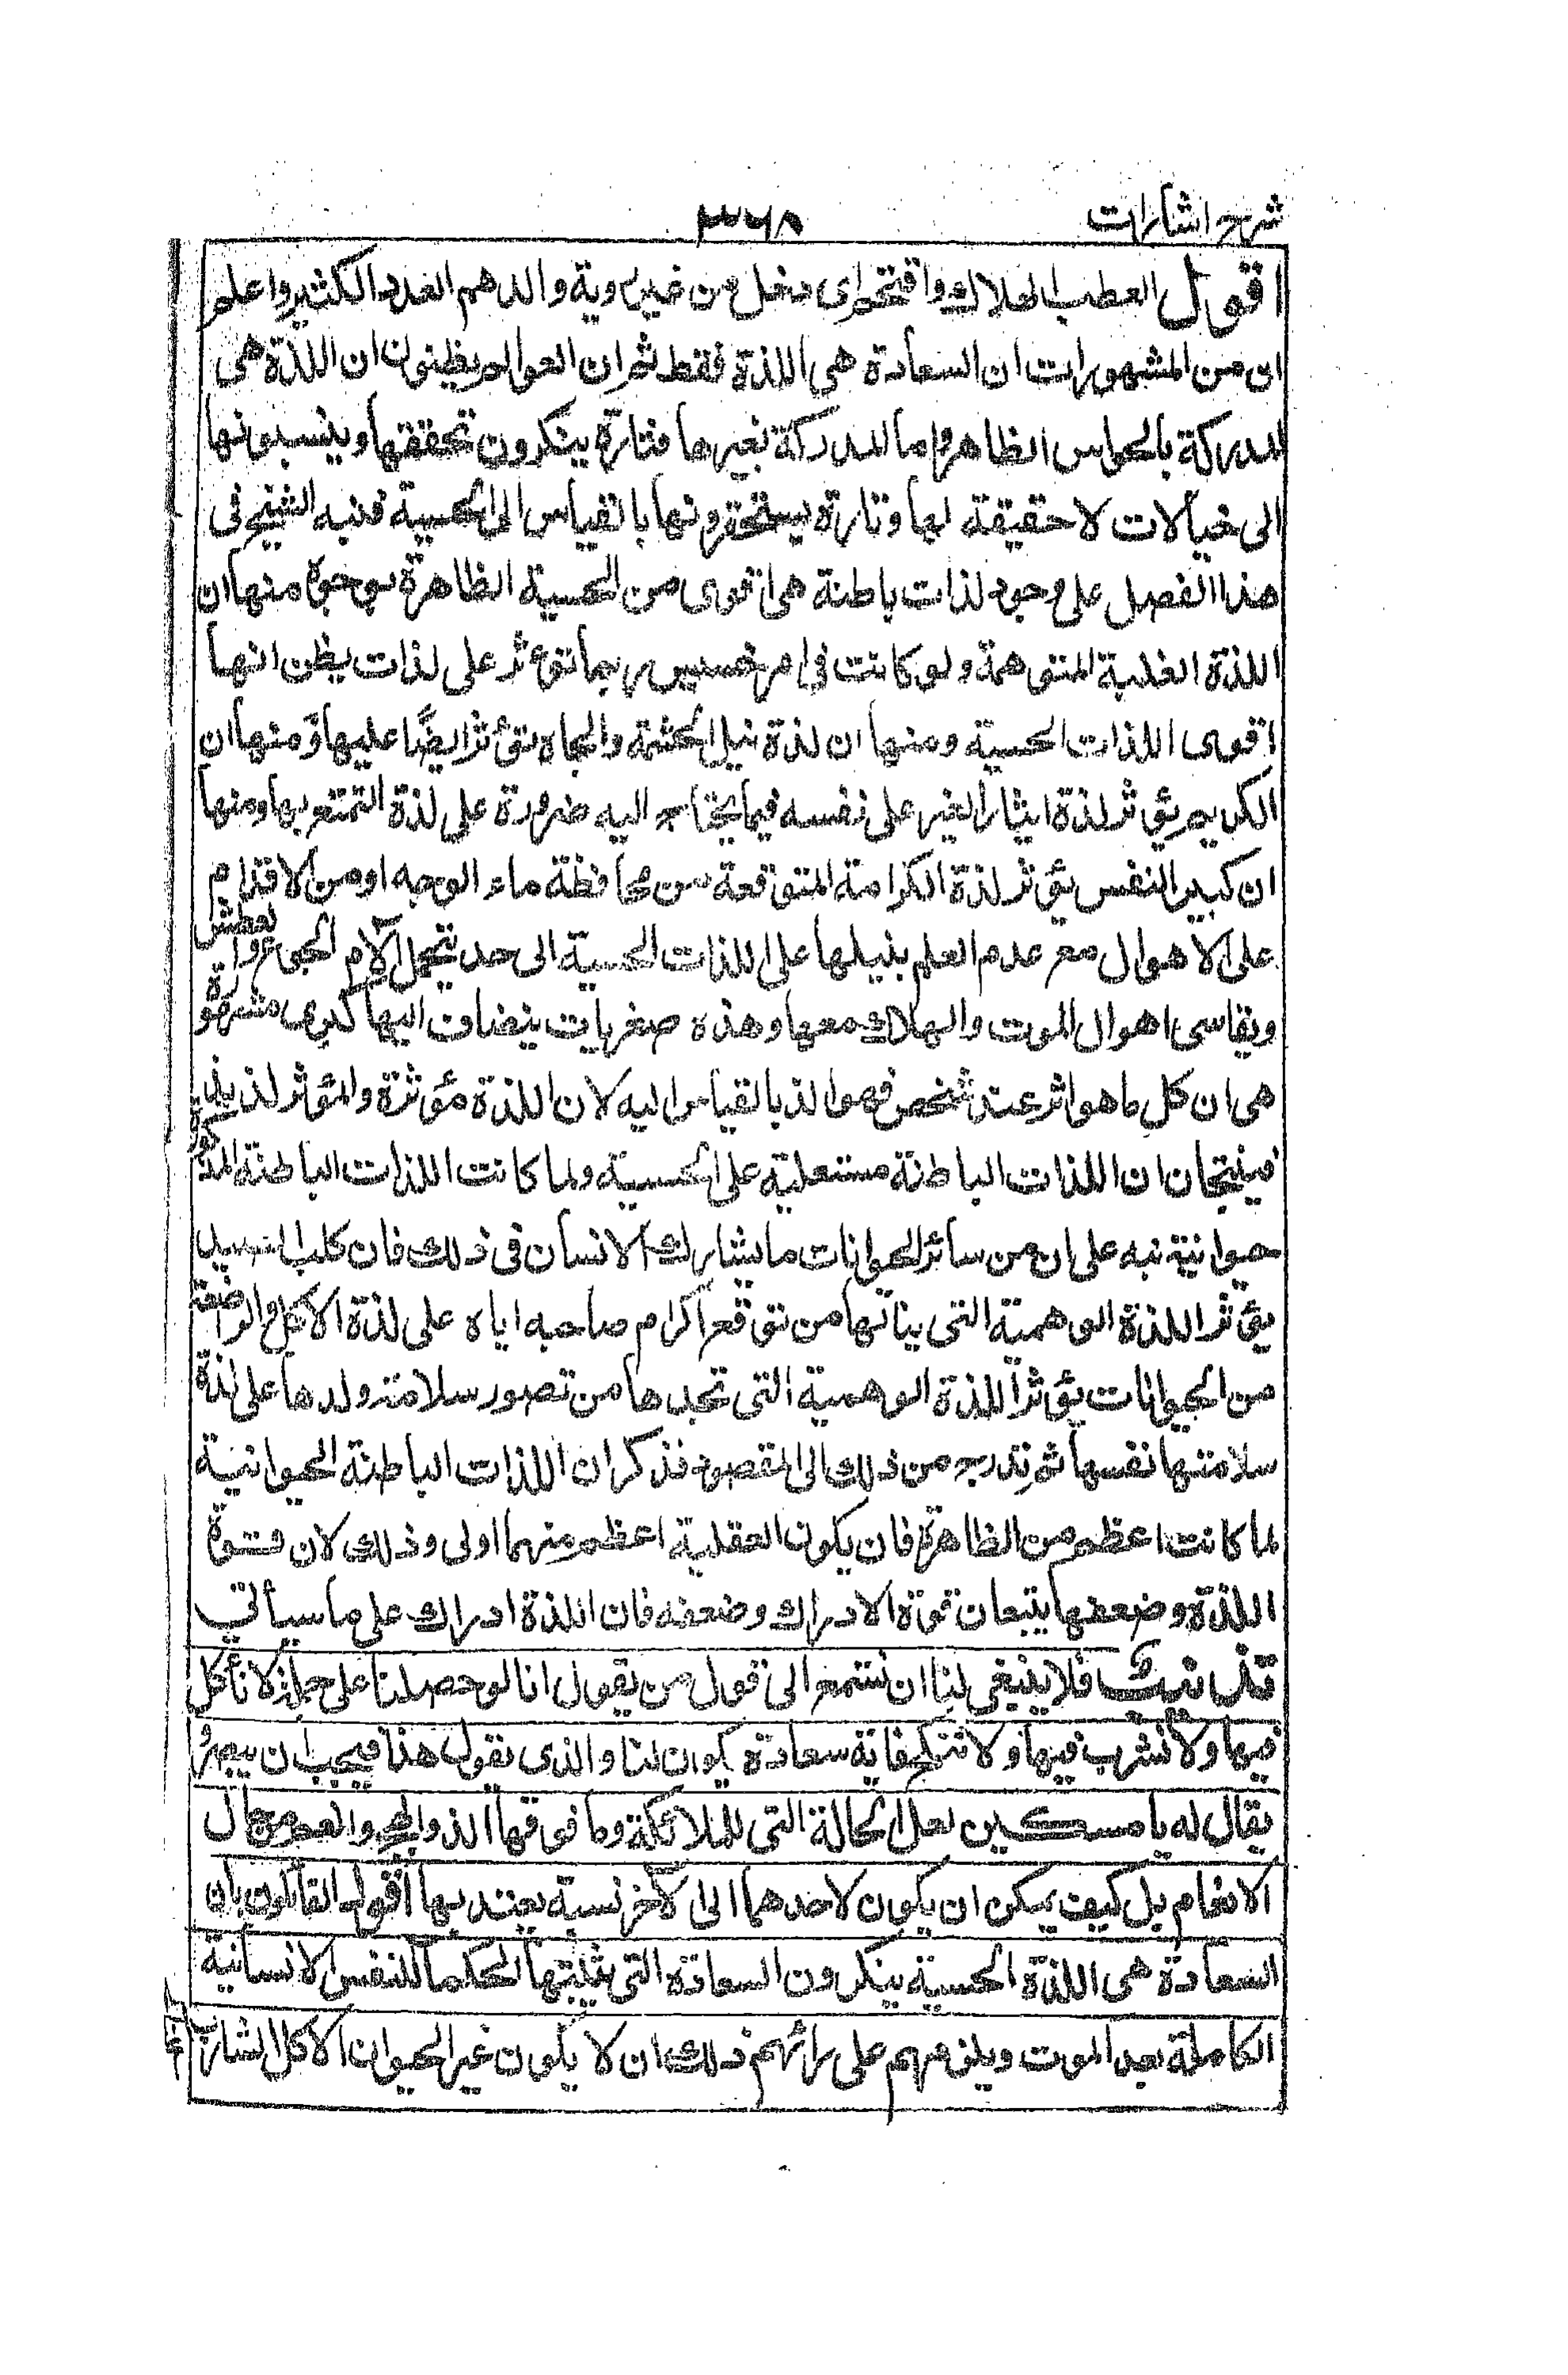 شرح اشارات
۳۶۸
اقول العطب الهلاك واقتحم اى دخل من غير روية والدهم العدد الكثير واعلم
ان من المشهورات ان السعادة هى اللذة فقط ثم ان العوام يظنون ان اللذة هى
المدركة بالحواس الظاهرة واما المدركة بغيرها فتارة ينكرون تحققها وينسبونها
الى خيالات لا حقيقة لها وتارة يستحقرونها بالقياس الى الحسية فنبه الشيخ فى
هذا الفصل على وجود لذات باطنة هى اقوى من الحسية الظاهرة بوجوه منها ان
اللذة الغلبة المتوهمة ولو كانت فى امر خسيس ربما تؤثر على لذات يظن انها
اقوى اللذات الحسية ومنها ان لذة نيل الحشمة والجاه تؤثر ايضًا عليها ومنها ان
الكريم يؤثر لذة ايثار الغير على نفسه فيما يحتاج اليه ضرورة على لذة التمتع بها ومنها
ان كبير النفس يؤثر لذة الكرامة المتوقعة من محافظة ماء الوجه او من الاقدام
على الاهوال مع عدم العلم بنيلها على اللذات الحسية الى حد يتحمل آلام الجوع والعطش
ويقاسى اهوال الموت والهلاك معها وهذه صغريات ينضاف اليها كبرى مشهورة
هى ان كل ما هو اثر عند شخص فهو الذ بالقياس اليه لان اللذة مؤثرة والمؤثر لذيذ
فينتجان ان اللذات الباطنة مستعلية على الحسية ولما كانت اللذات الباطنة المذكورة
حيوانية نبه على ان من سائر الحيوانات ما يشارك الانسان فى ذلك فان كلب الصيد
يؤثر اللذة الوهمية التى ينالها من توقع اكرام صاحبه اياه على لذة الاكل والراضعة
من الحيوانات يؤثر اللذة الوهمية التى تجدها من تصور سلامة ولدها على لذة
سلامتها نفسها ثم تدرج من ذلك الى المقصود فذكر ان اللذات الباطنة الحيوانية
لما كانت اعظم من الظاهرة فان يكون العقلية اعظم منهما اولى وذلك لان قوة
اللذة وضعفها يتبعان قوة الادراك وضعفه فان اللذة ادراك على ما سيأتى
تذنيب فلا ينبغى لنا ان نستمع الى قول من يقول انا لو حصلنا على جملة لا نأكل
فيها ولا نشرب فيها ولا ننكح فاية سعادة يكون لنا والذى يقول هذا فيجب ان يبصر و
يقال له يا مسكين لعل الحالة التى للملائكة وما فوقها الذ وابهج وانعم من حال
الانعام بل كيف يمكن ان يكون لاحدهما الى الآخر نسبة يعتد بها اقول القائلون بان
السعادة هى اللذة الحسية ينكرون السعادة التى يثبتها الحكما للنفس الانسانية
الكاملة بعد الموت ويلزمهم على رائهم ذلك ان لا يكون غير الحيوان الاكل الشارب